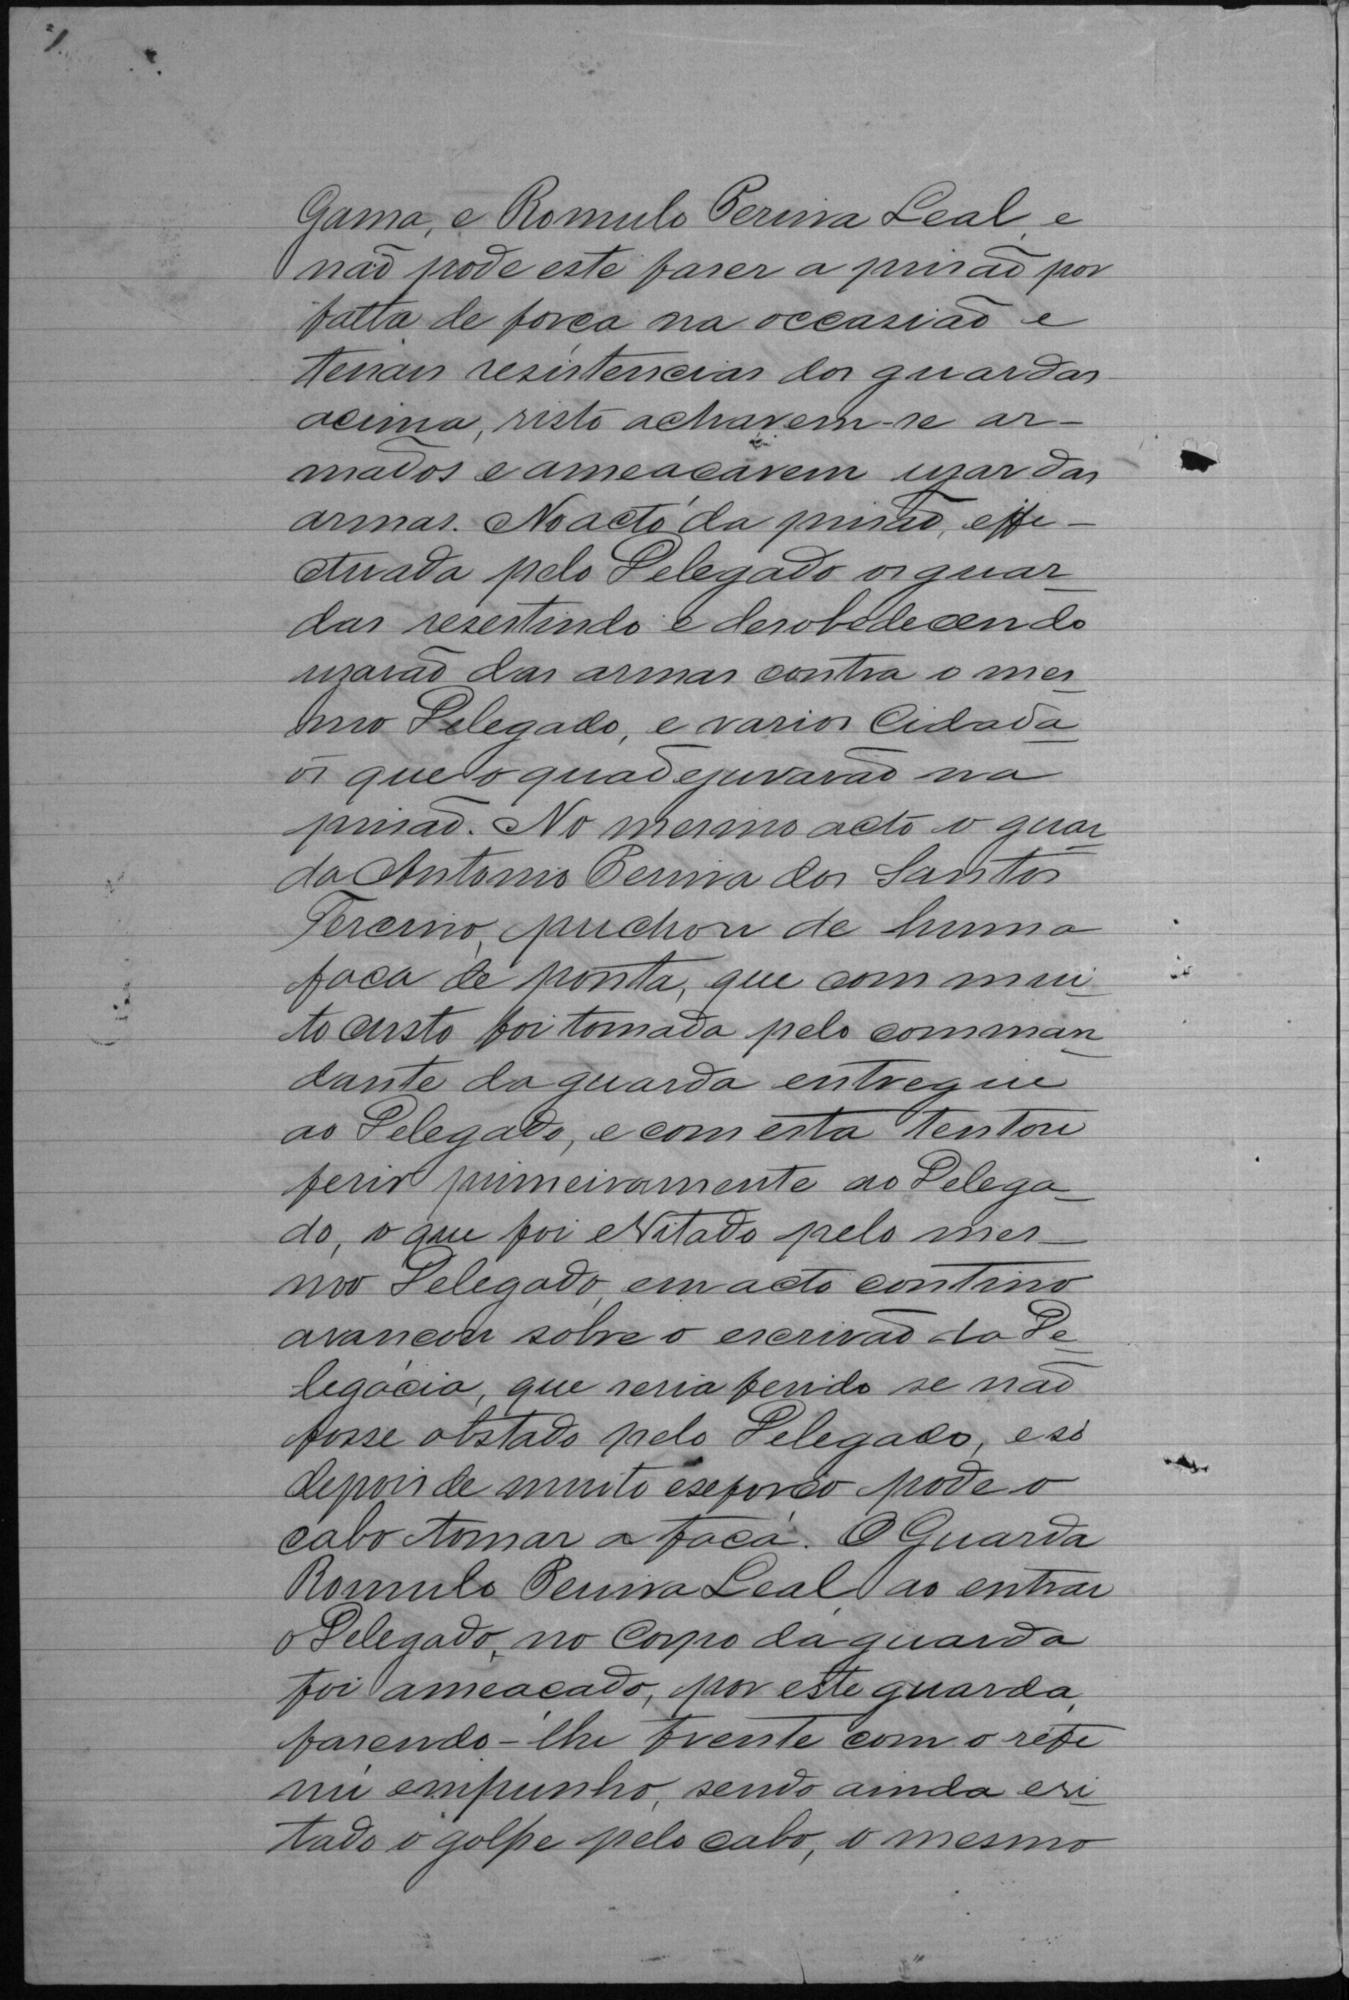 Gama, e Romulo Pereira Leal, e
não pode este faser a prisão por
falta de força na occasião e
tenais resistencias dos guardas
acima, visto achavem-se ar-
mados e ameaçavem usar das
armas. No acto da prisão, effe-
ctuada pelo Delegado os guar
das resestindo e desobedecendo
usarão das armas contra o mes
mo Delegado, e varios Cidadã
os que o quadejuvarão na
prisão. No mesmo acto o guar
da Antonio Pereira dos Santos
Terceiro, puchou de huma
faca de ponta, que com mui
to custo foi tomada pelo comman
dante da guarda entregue
ao Delegado, e com esta tentou
ferir primeiramente ao Delega
do, o que foi evitado pelo mes-
mo Delegado, em acto contino
avançou sobre o escrivão da De
legácia, que seria ferido se não
fosse obstado pelo Delegado, e só
depois de muito eseforço pode o
cabo tomar a faca. O Guarda
Romulo Pereira Leal, ao entrar
o Delegado, no Corpo da guarda
foi ameaçado, por este guarda,
fasendo-lhe frente com o refe
nú empunho, sendo ainda evi
tado o golpe pelo cabo, o mesmo